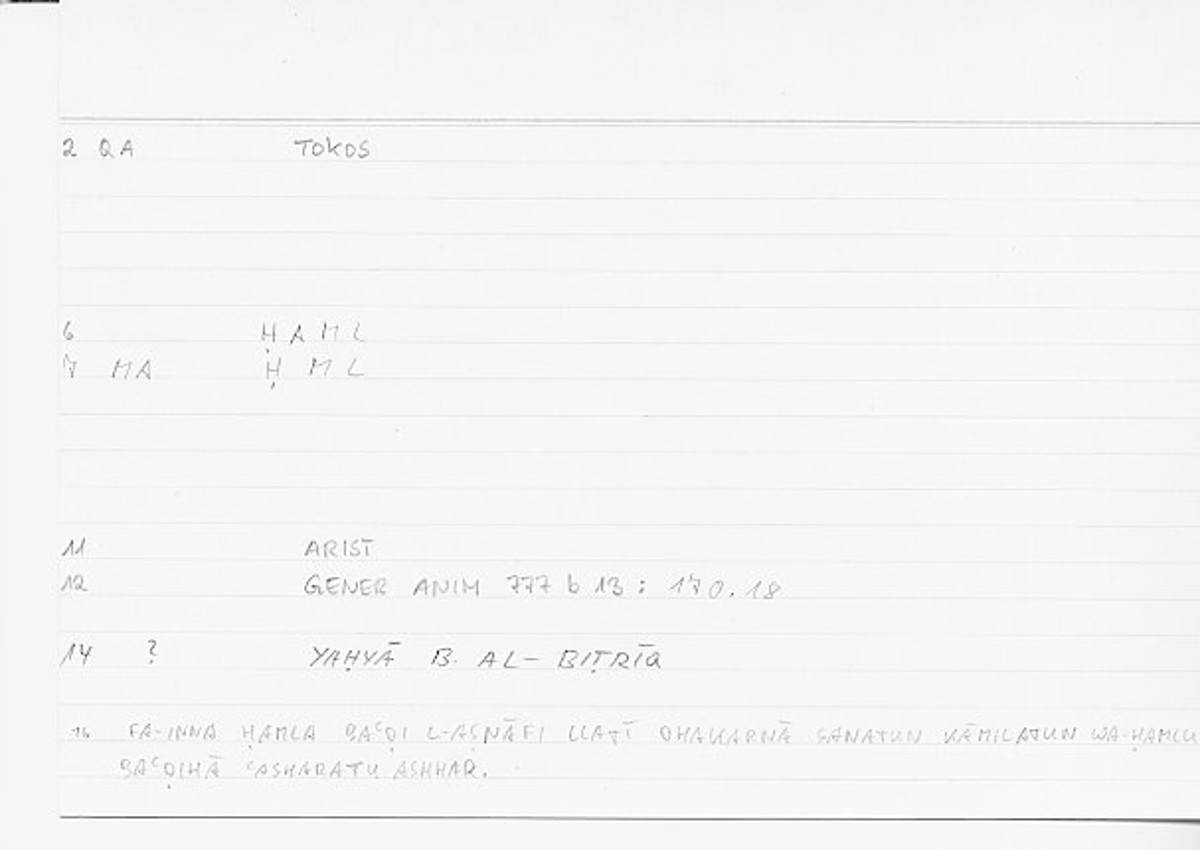 2 QA TOKOS
6 ḤAML
7 MA ḤML
11 ARIST
12 GENER ANIM 777 b 13 : 170.18
14 ? YAḤYĀ B. AL-BIṬRĪQ
16 FA-INNA ḤAMLA BAʿḌI L-AṢNĀFI LLATĪ DHAKARNĀ SANATUN KĀMILATUN WA-ḤAMLU
BAʿḌIHĀ ʿASHARATU ASHHAR.